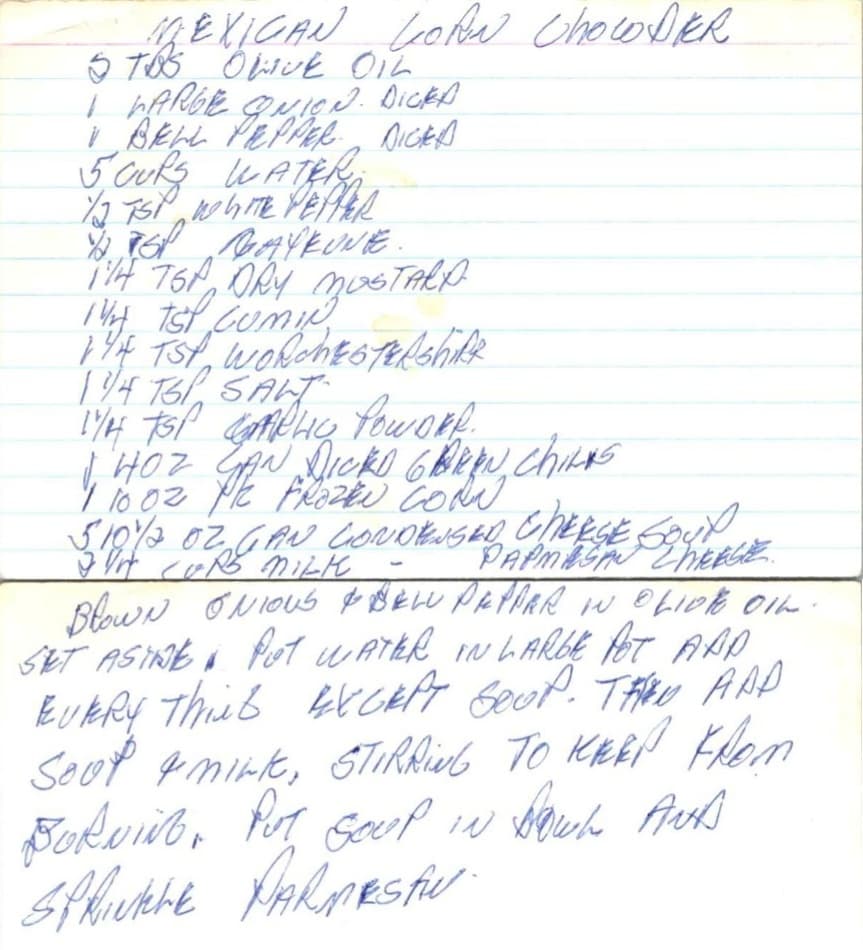 MEXICAN CORN CHOWDER
5 TBS OLIVE OIL
1 LARGE ONION. DICED
1 BELL PEPPER. DICED
5 CUPS WATER.
1/2 TSP WHITE PEPPER
1/2 TSP CAYEUNE.
1 1/4 TSP DRY MUSTARD
1 1/4 TSP CUMIN
1 1/4 TSP WORCHESTERSHIRE
1 1/4 TSP SALT
1 1/4 TSP GARLIC POWDER.
1 4 OZ CAN DICED GREEN CHILIS
1 10 OZ PK FROZEN CORN
5 10 1/2 OZ CAN CONDENSED CHEESE SOUP
1/4 CUPS MILK - PARMESAN CHEESE.
BROWN ONIONS & BELL PEPPER IN OLIVE OIL.
SET ASIDE. PUT WATER IN LARGE POT ADD
EVERY THING EXCEPT SOUP. THEN ADD
SOUP & MILK, STIRRING TO KEEP FROM
BURNING. PUT SOUP IN BOWL AND
SPRINKLE PARMESAN.